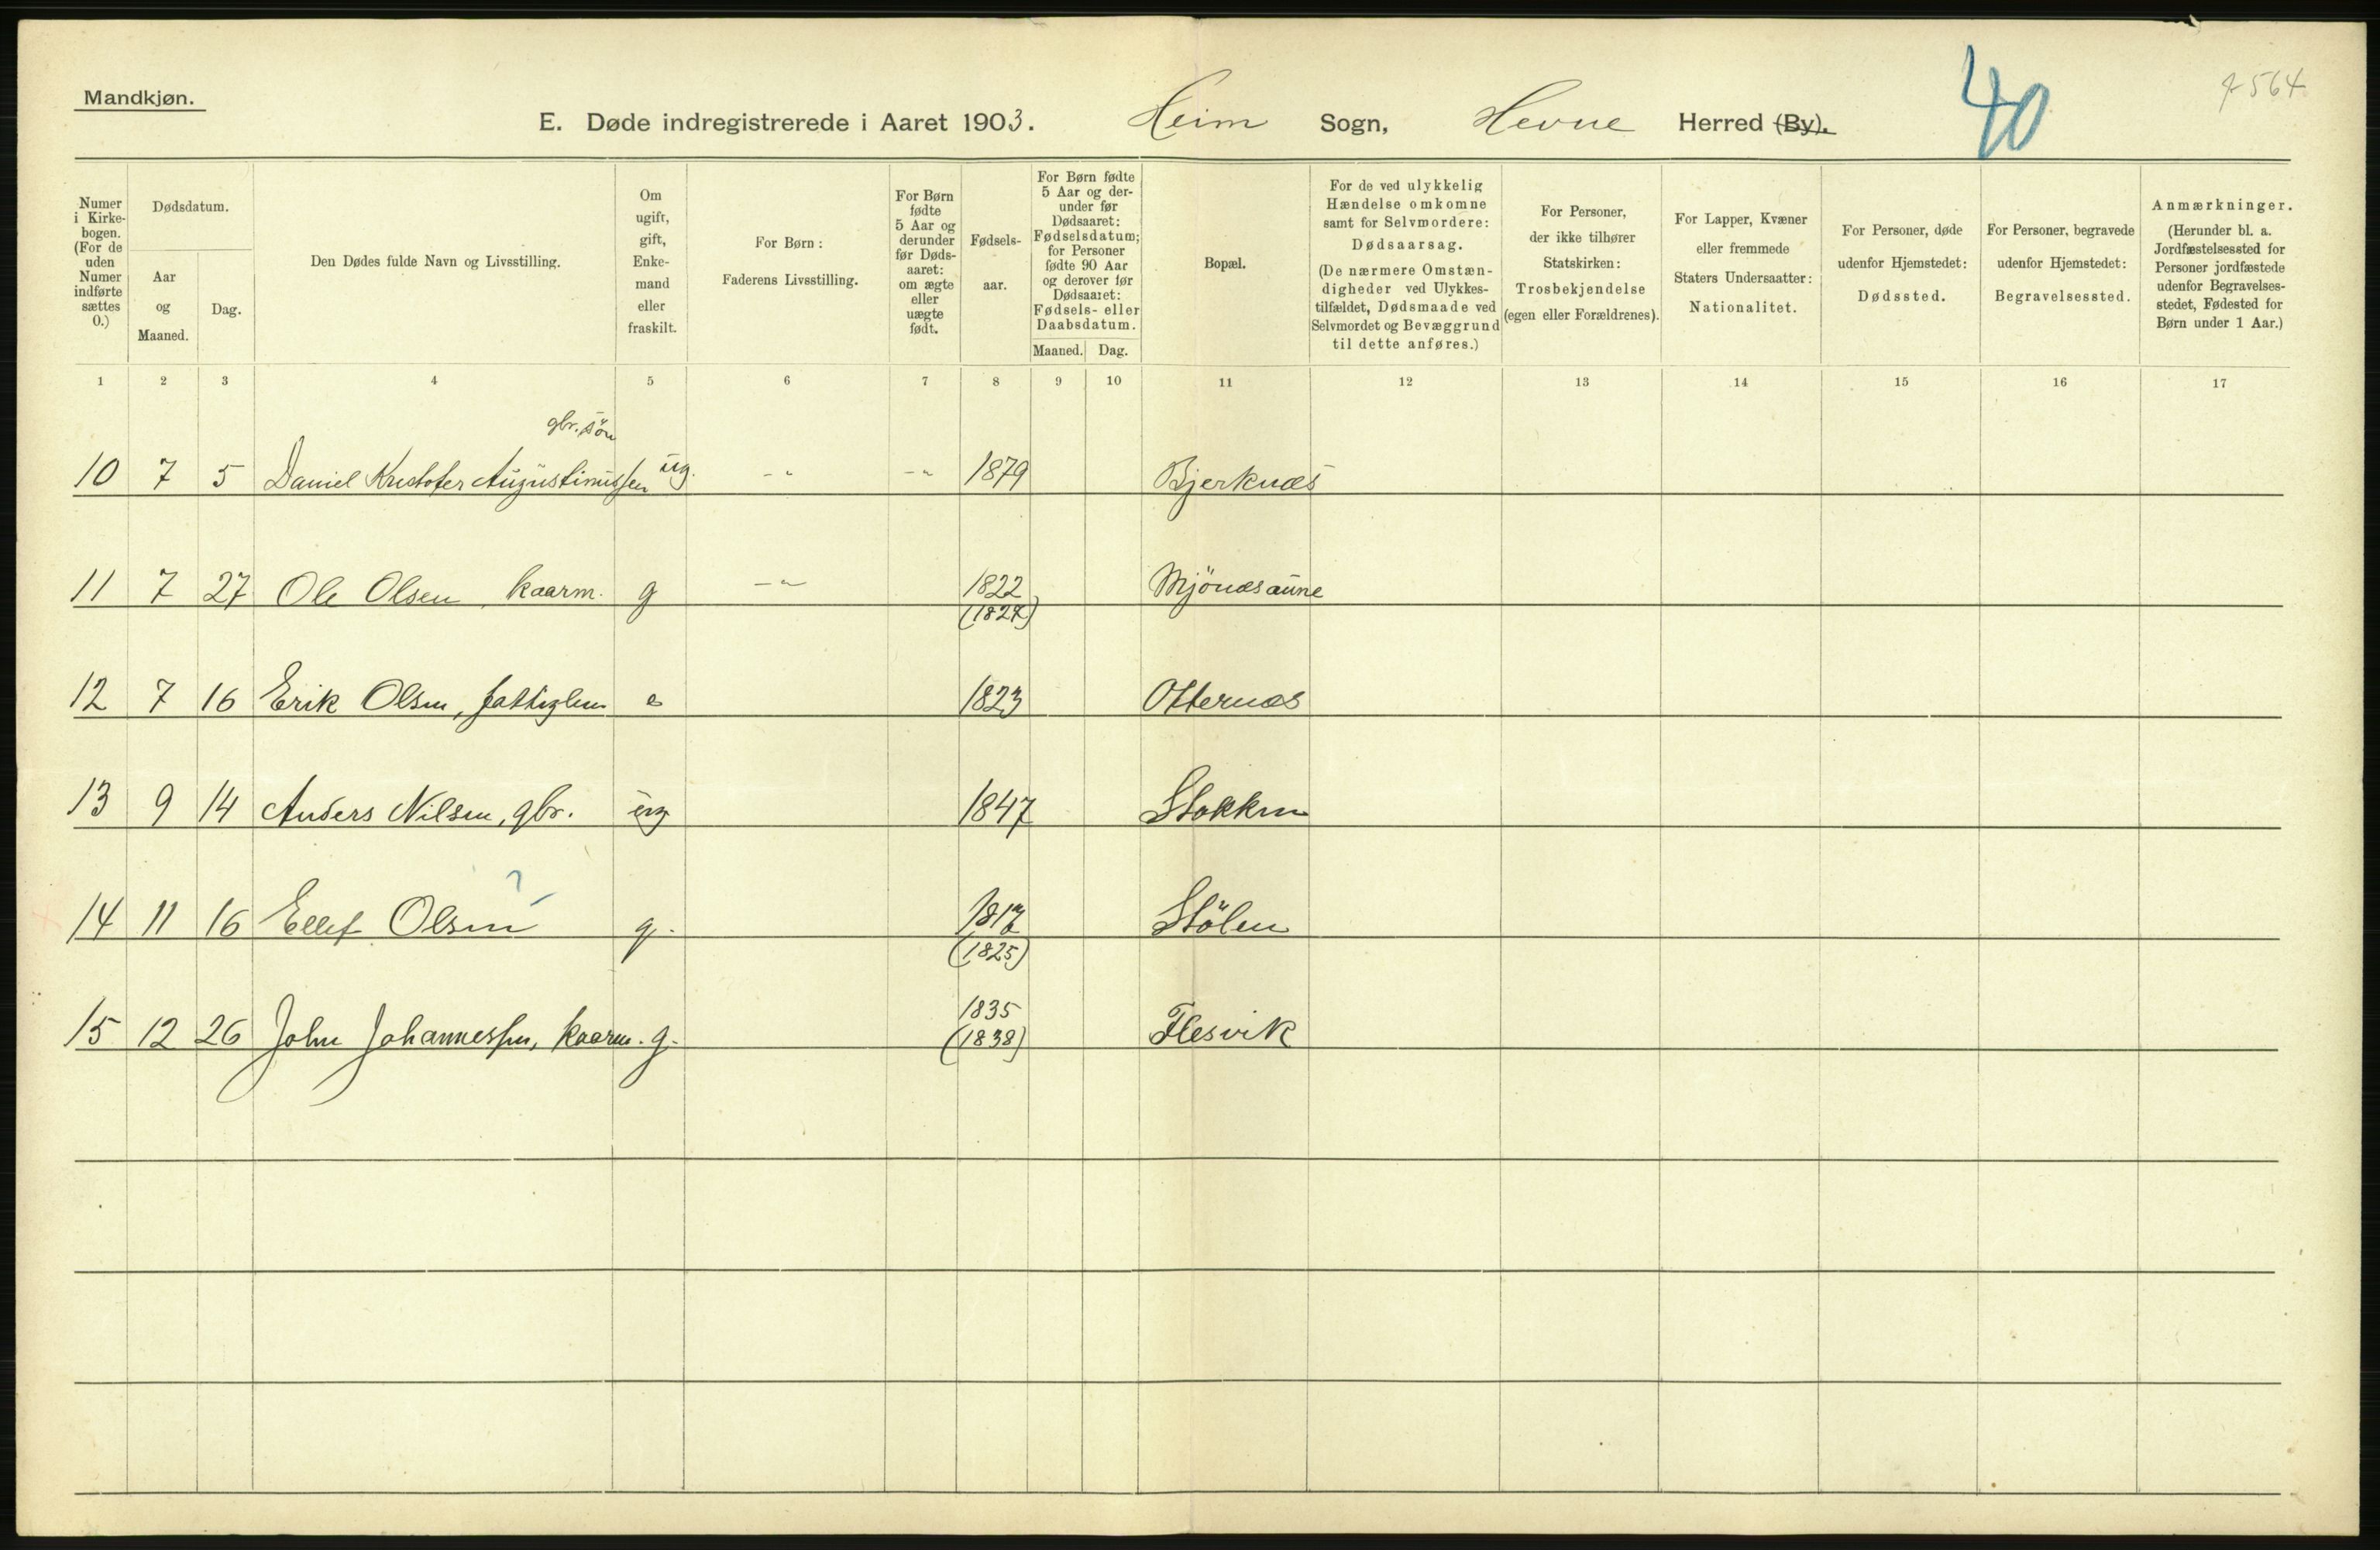 Mandkjøn.
E. Døde indregistrerede i Aaret 1903. Heim Sogn, Hevne Herred (By).
40
564
Numer i Kirkebogen. (For de uden Numer indførte sættes 0.)
Dødsdatum.
Aar og Maaned.
Dag.
Den Dødes fulde Navn og Livsstilling.
Om ugift, gift, Enkemand eller fraskilt.
For Børn: Faderens Livsstilling.
For Børn fødte 5 Aar og derunder før Dødsaaret: om ægte eller uægte født.
Fødselsaar.
For Børn fødte 5 Aar og derunder før Dødsaaret: Fødselsdatum; for Personer fødte 90 Aar og derover før Dødsaaret: Fødsels- eller Daabsdatum.
Maaned. Dag.
Bopæl.
For de ved ulykkelig Hændelse omkomne samt for Selvmordere: Dødsaarsag. (De nærmere Omstændigheder ved Ulykkestilfældet, Dødsmaade ved Selvmordet og Bevæggrund til dette anføres.)
For Personer, der ikke tilhører Statskirken: Trosbekjendelse (egen eller Forældrenes).
For Lapper, Kvæner eller fremmede Staters Undersaatter: Nationalitet.
For Personer, døde udenfor Hjemstedet: Dødssted.
For Personer, begravede udenfor Hjemstedet: Begravelsessted.
Anmærkninger. (Herunder bl. a. Jordfæstelsessted for Personer jordfæstede udenfor Begravelsesstedet, Fødested for Børn under 1 Aar.)
1 2 3 4 5 6 7 8 9 10 11 12 13 14 15 16 17
gbr. sön
10 7 5 Daniel Kristofer Augustinussen ug. -"- -"- 1879 Bjerknæs
11 7 27 Ole Olsen, kaarm. g -"- 1822 Mjönæsaune
(1824)
12 7 16 Erik Olsen, fattiglem e 1823 Otternæs
13 9 14 Anders Nilsen, gbr. ug 1847 Stokken
?
14 11 16 Ellef Olsen g. 1817 Stölen
(1825)
1835
15 12 26 John Johannessen, kaarm. g. (1838) Flesvik